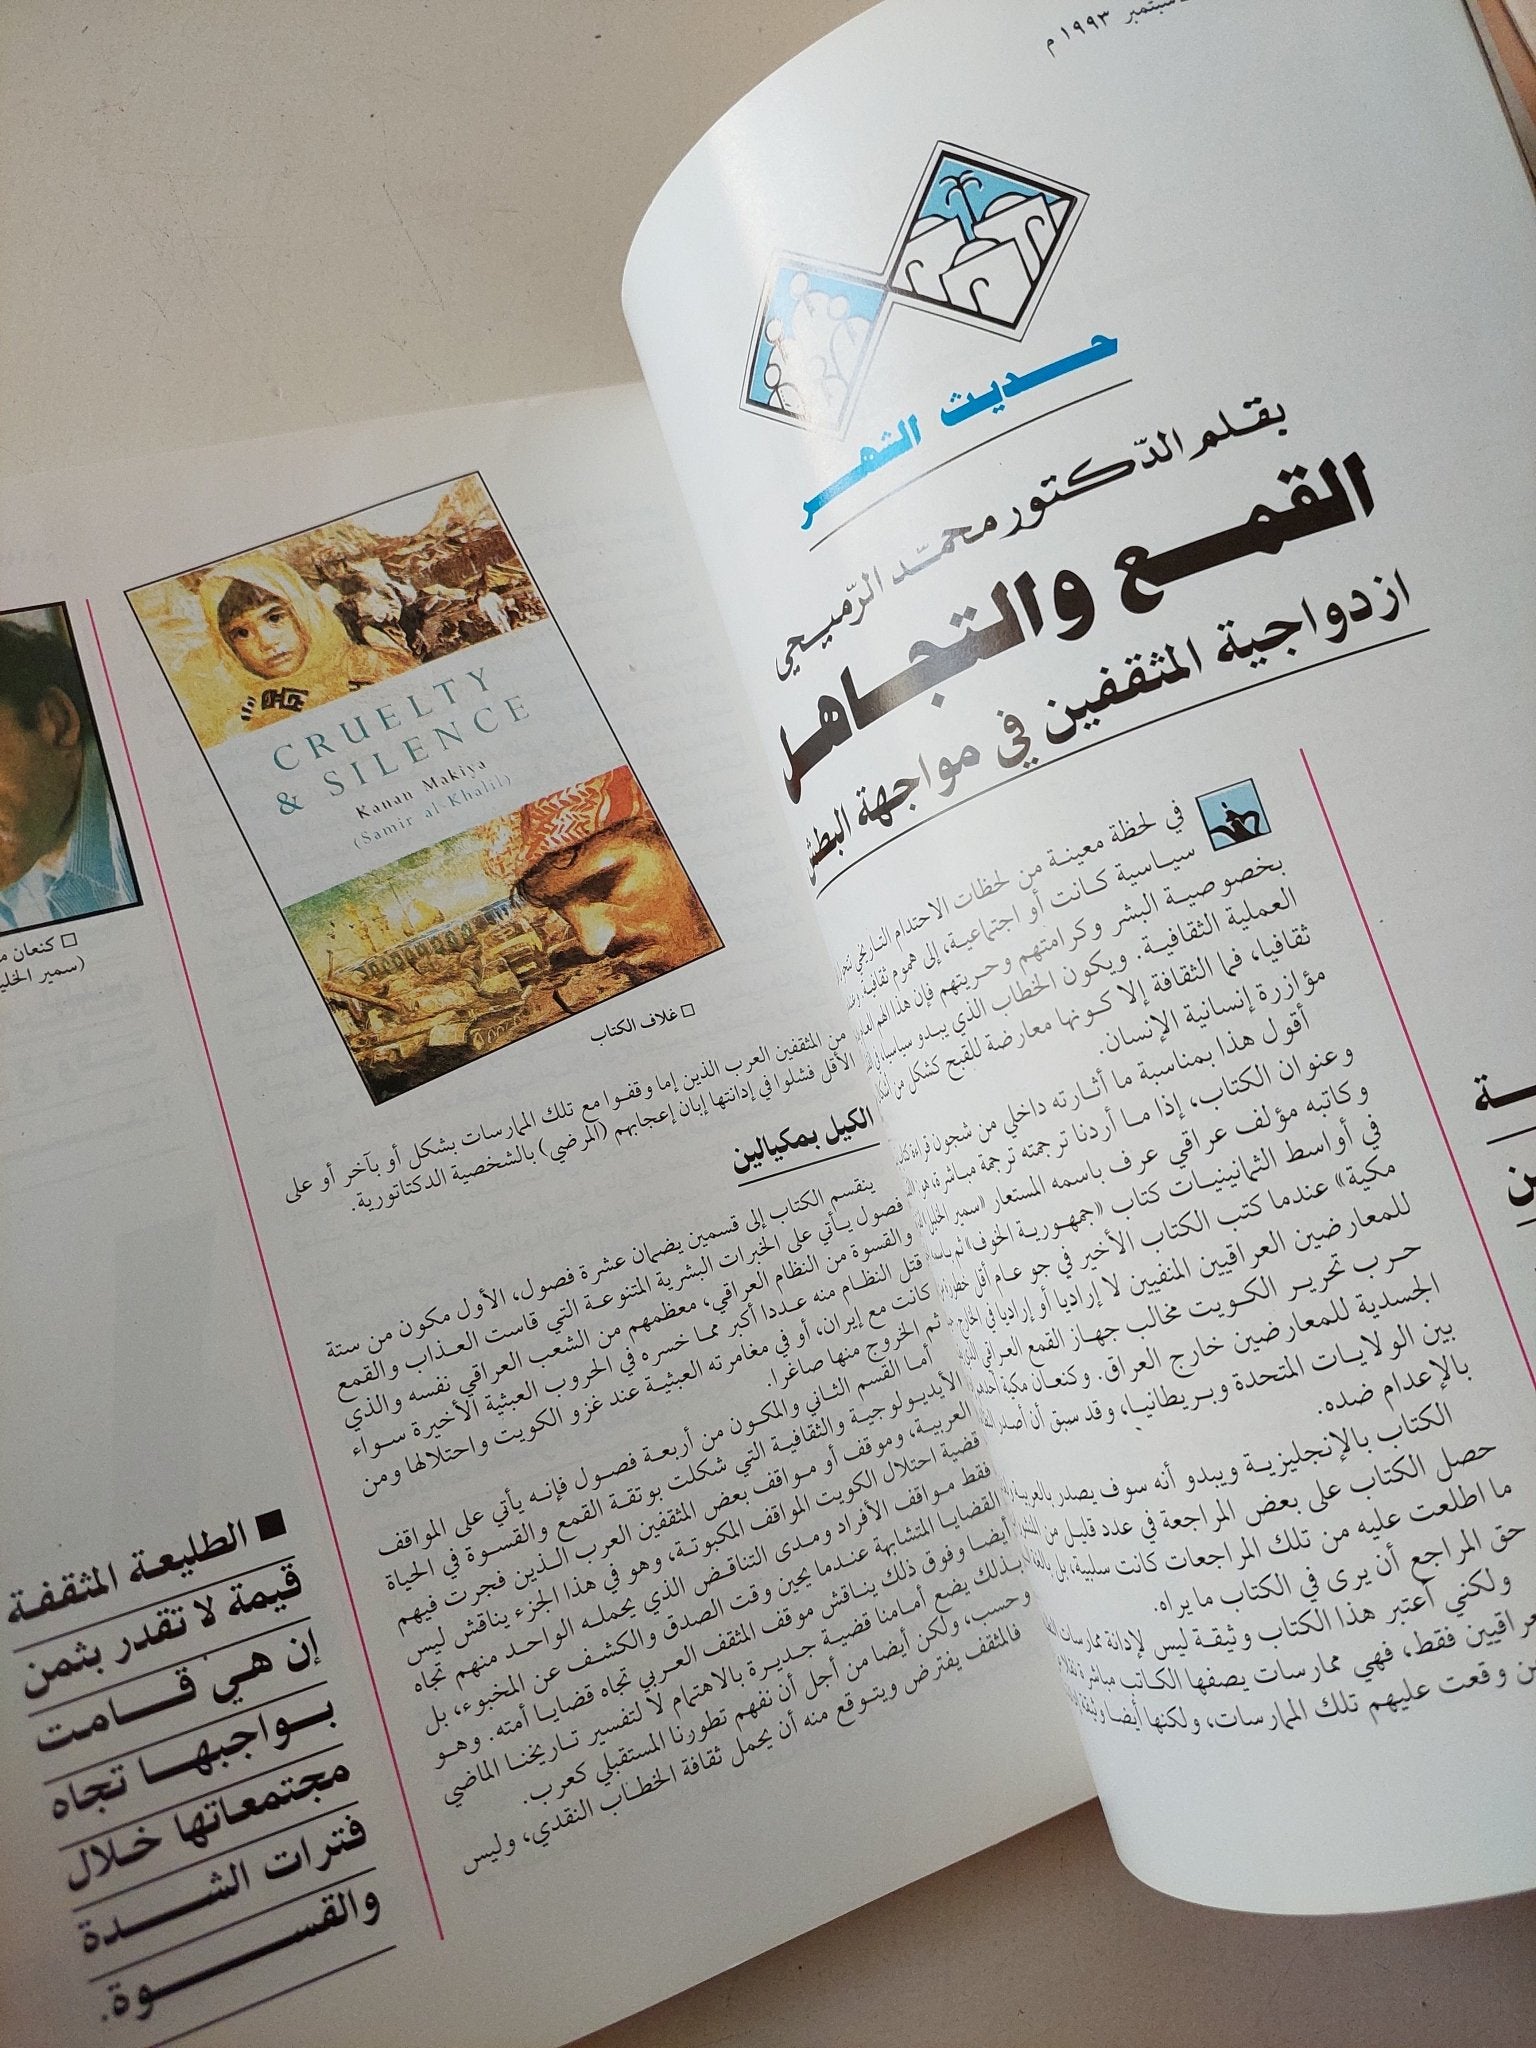 سبتمبر ١٩٩٣ م
حديث الشهر
بقلم الدكتور محمد الرميحي
القمع والتجاهل
ازدواجية المثقفين في مواجهة البطش
في لحظة معينة من لحظات الاحتدام التاريخي
سياسية كانت أو اجتماعية، إلى هموم ثقافية
بخصوصية البشر وكرامتهم وحريتهم فإن هذا الهم
العملية الثقافية. ويكون الخطاب الذي يبدو سياسيا
ثقافيا، فما الثقافة إلا كونها معارضة للقبح كشكل من
مؤازرة إنسانية الإنسان.
أقول هذا بمناسبة ما أثارته داخلي من شجون قراءة
وعنوان الكتاب، إذا ما أردنا ترجمته ترجمة مباشرة، هو
وكاتبه مؤلف عراقي عرف باسمه المستعار «سمير الخليل
في أواسط الثمانينيات كتاب «جمهورية الخوف» ثم
مكية» عندما كتب الكتاب الأخير في جو عام أقل
للمعارضين العراقيين المنفيين لا إراديا أو إراديا في الخارج
حرب تحرير الكويت مخالب جهاز القمع العراقي
الجسدية للمعارضين خارج العراق. وكنعان مكية
بين الولايات المتحدة وبريطانيا، وقد سبق أن أصدر
بالإعدام ضده.
الكتاب بالإنجليزية ويبدو أنه سوف يصدر بالعربية
حصل الكتاب على بعض المراجعة في عدد قليل من
ما اطلعت عليه من تلك المراجعات كانت سلبية، بل
حق المراجع أن يرى في الكتاب ما يراه.
ولكني أعتبر هذا الكتاب وثيقة ليس لإدانة ممارسات
فقط، فهي ممارسات يصفها الكاتب مباشرة
وقعت عليهم تلك الممارسات، ولكنها أيضا
CRUELTY
& SILENCE
Kanan Makiya
(Samir al-Khalil)
□ غلاف الكتاب
□ كنعان
(سمير
من المثقفين العرب الذين إما وقفوا مع تلك الممارسات بشكل أو بآخر أو على
الأقل فشلوا في إدانتها إبان إعجابهم (المرضي) بالشخصية الدكتاتورية.
الكيل بمكيالين
ينقسم الكتاب إلى قسمين يضمان عشرة فصول، الأول مكون من ستة
فصول يأتي على الخبرات البشرية المتنوعة التي قاست العذاب والقمع
والقسوة من النظام العراقي، معظمهم من الشعب العراقي نفسه والذي
قتل النظام منه عددا أكبر مما خسره في الحروب العبثية الأخيرة سواء
كانت مع إيران، أو في مغامرته العبثية عند غزو الكويت واحتلالها ومن
ثم الخروج منها صاغرا.
أما القسم الثاني والمكون من أربعة فصول فإنه يأتي على المواقف
الأيديولوجية والثقافية التي شكلت بوتقة القمع والقسوة في الحياة
العربية، وموقف أو مواقف بعض المثقفين العرب الذين فجرت فيهم
قضية احتلال الكويت المواقف المكبوتة، وهو في هذا الجزء يناقش ليس
فقط مواقف الأفراد ومدى التناقض الذي يحمله الواحد منهم تجاه
القضايا المتشابهة عندما يحين وقت الصدق والكشف عن المخبوء، بل
أيضا وفوق ذلك يناقش موقف المثقف العربي تجاه قضايا أمته. وهو
بذلك يضع أمامنا قضية جديرة بالاهتمام لا لتفسير تاريخنا الماضي
وحسب، ولكن أيضا من أجل أن نفهم تطورنا المستقبلي كعرب.
فالمثقف يفترض ويتوقع منه أن يحمل ثقافة الخطاب النقدي، وليس
■ الطليعة المثقفة
قيمة لا تقدر بثمن
إن هي قامت
بواجبها تجاه
مجتمعاتها خلال
فترات الشدة
والقسوة.